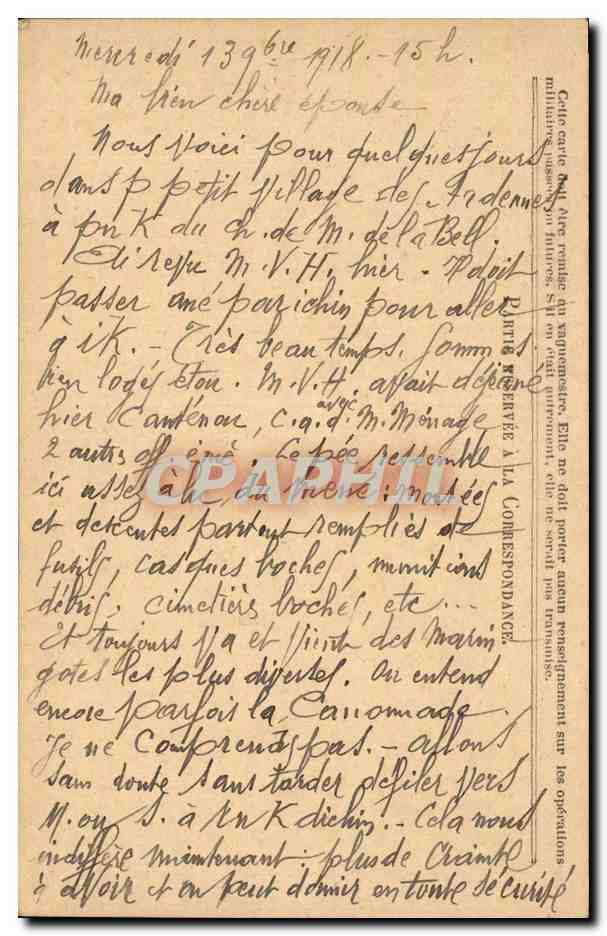 Mercredi 13 9bre 1918.- 15 h.
Ma bien chère épouse
Nous voici pour quelques jours
dans p petit village des Ardennes
à K du ch. de M. de la Bell.
revu M. V. H. hier. Il doit
passer par ichin pour aller
à K. - Très beau temps. Somms
bien logés M. V. H. avait déjeuné
hier c.a.d. avec M. Ménage
2 autrs off. Le ressemble
ici assez à du montées
et descentes partout remplies de
fusils, casques boches, munitions
débris, cimetiers boches, etc...
Et toujours va et vient des
les plus diverses. On entend
encore parfois la Canonnade.
Je ne Comprends pas. - allons
sans doute sans tarder défiler vers
M. ou S. à K dichin. - Cela nous
indiffère maintenant. plus de Crainte
à avoir et on peut dormir en toute sécurité
PARTIE RÉSERVÉE À LA CORRESPONDANCE.
Cette carte doit être remise au vaguemestre. Elle ne doit porter aucun renseignement sur les opérations
militaires passées ou futures. S'il en était autrement, elle ne serait pas transmise.
CPAPHIL